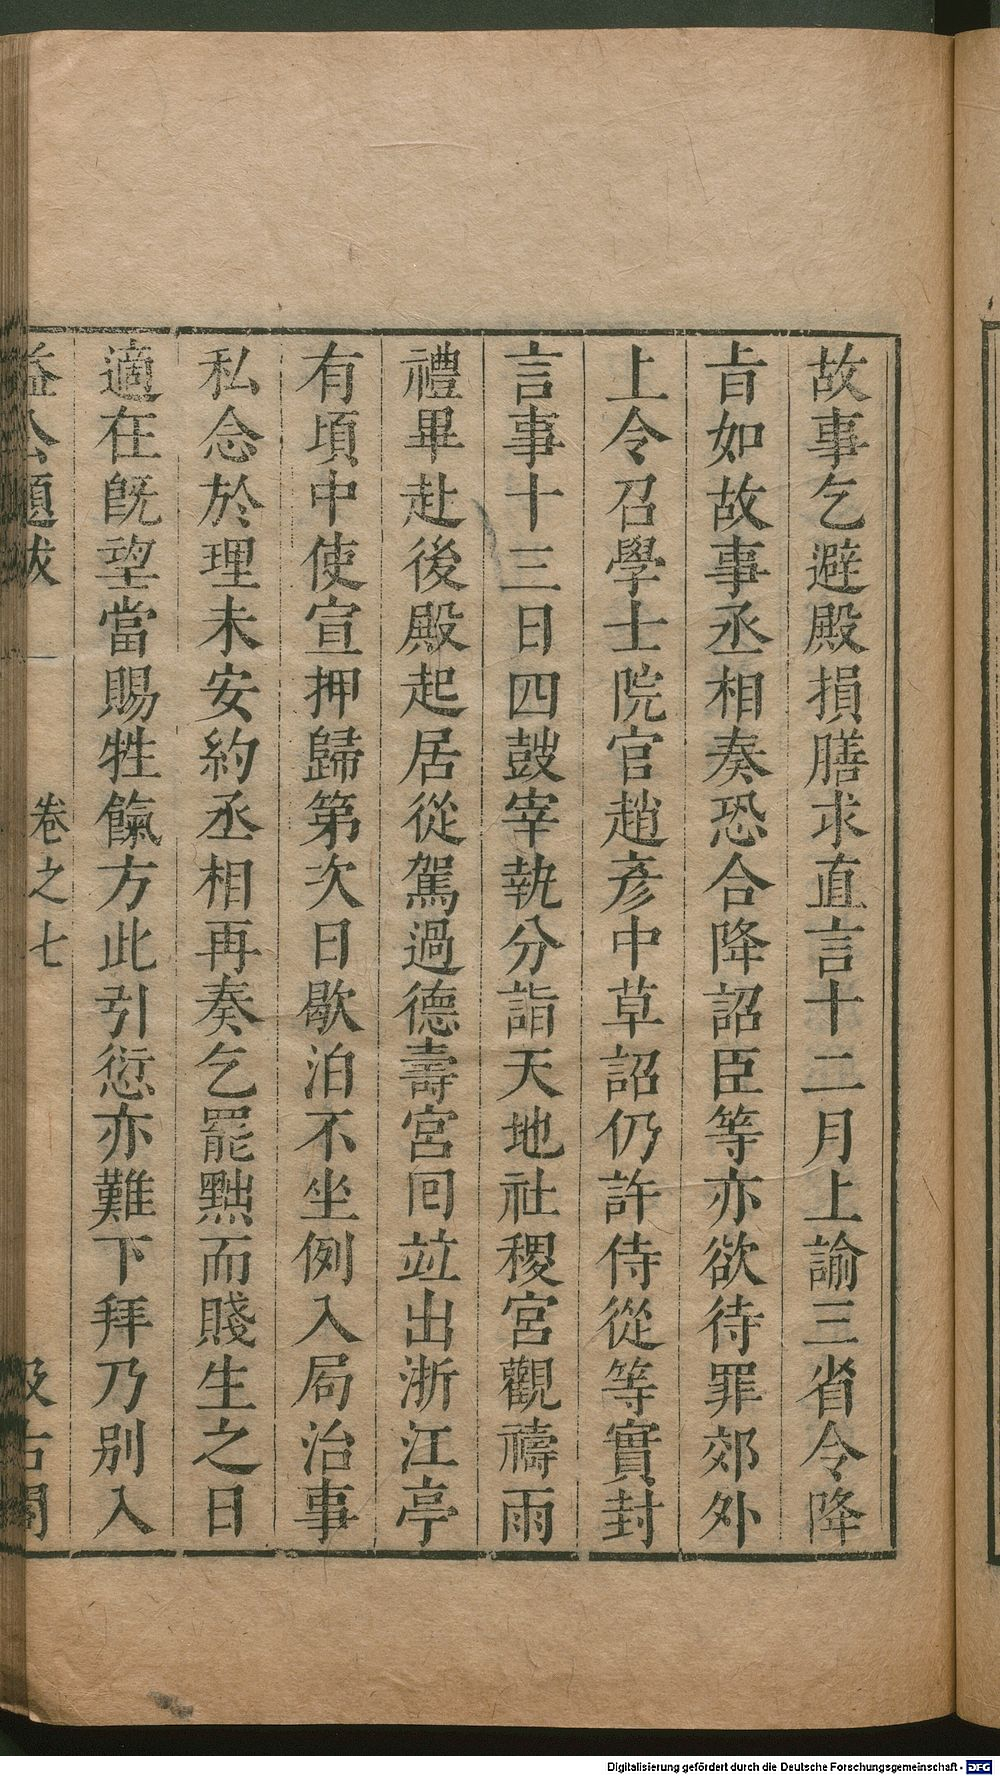 故事乞避殿損膳求直言十二月上諭三省令降
㫖如故事丞相奏恐合降詔臣等亦欲待罪郊外
上令召學士院官趙彦中草詔仍許侍從等實封
言事十三日四鼓宰執分詣天地社稷宮觀禱雨
禮畢赴後殿起居從駕過德壽宮囘竝出浙江亭
有頃中使宣押歸第次日歇泊不坐例入局治事
私念於理未安約丞相再奏乞罷黜而賤生之日
適在旣望當賜牲餼方此引愆亦難下拜乃别入
益公題跋 卷之七 汲古閣
Digitalisierung gefördert durch die Deutsche Forschungsgemeinschaft - DFG